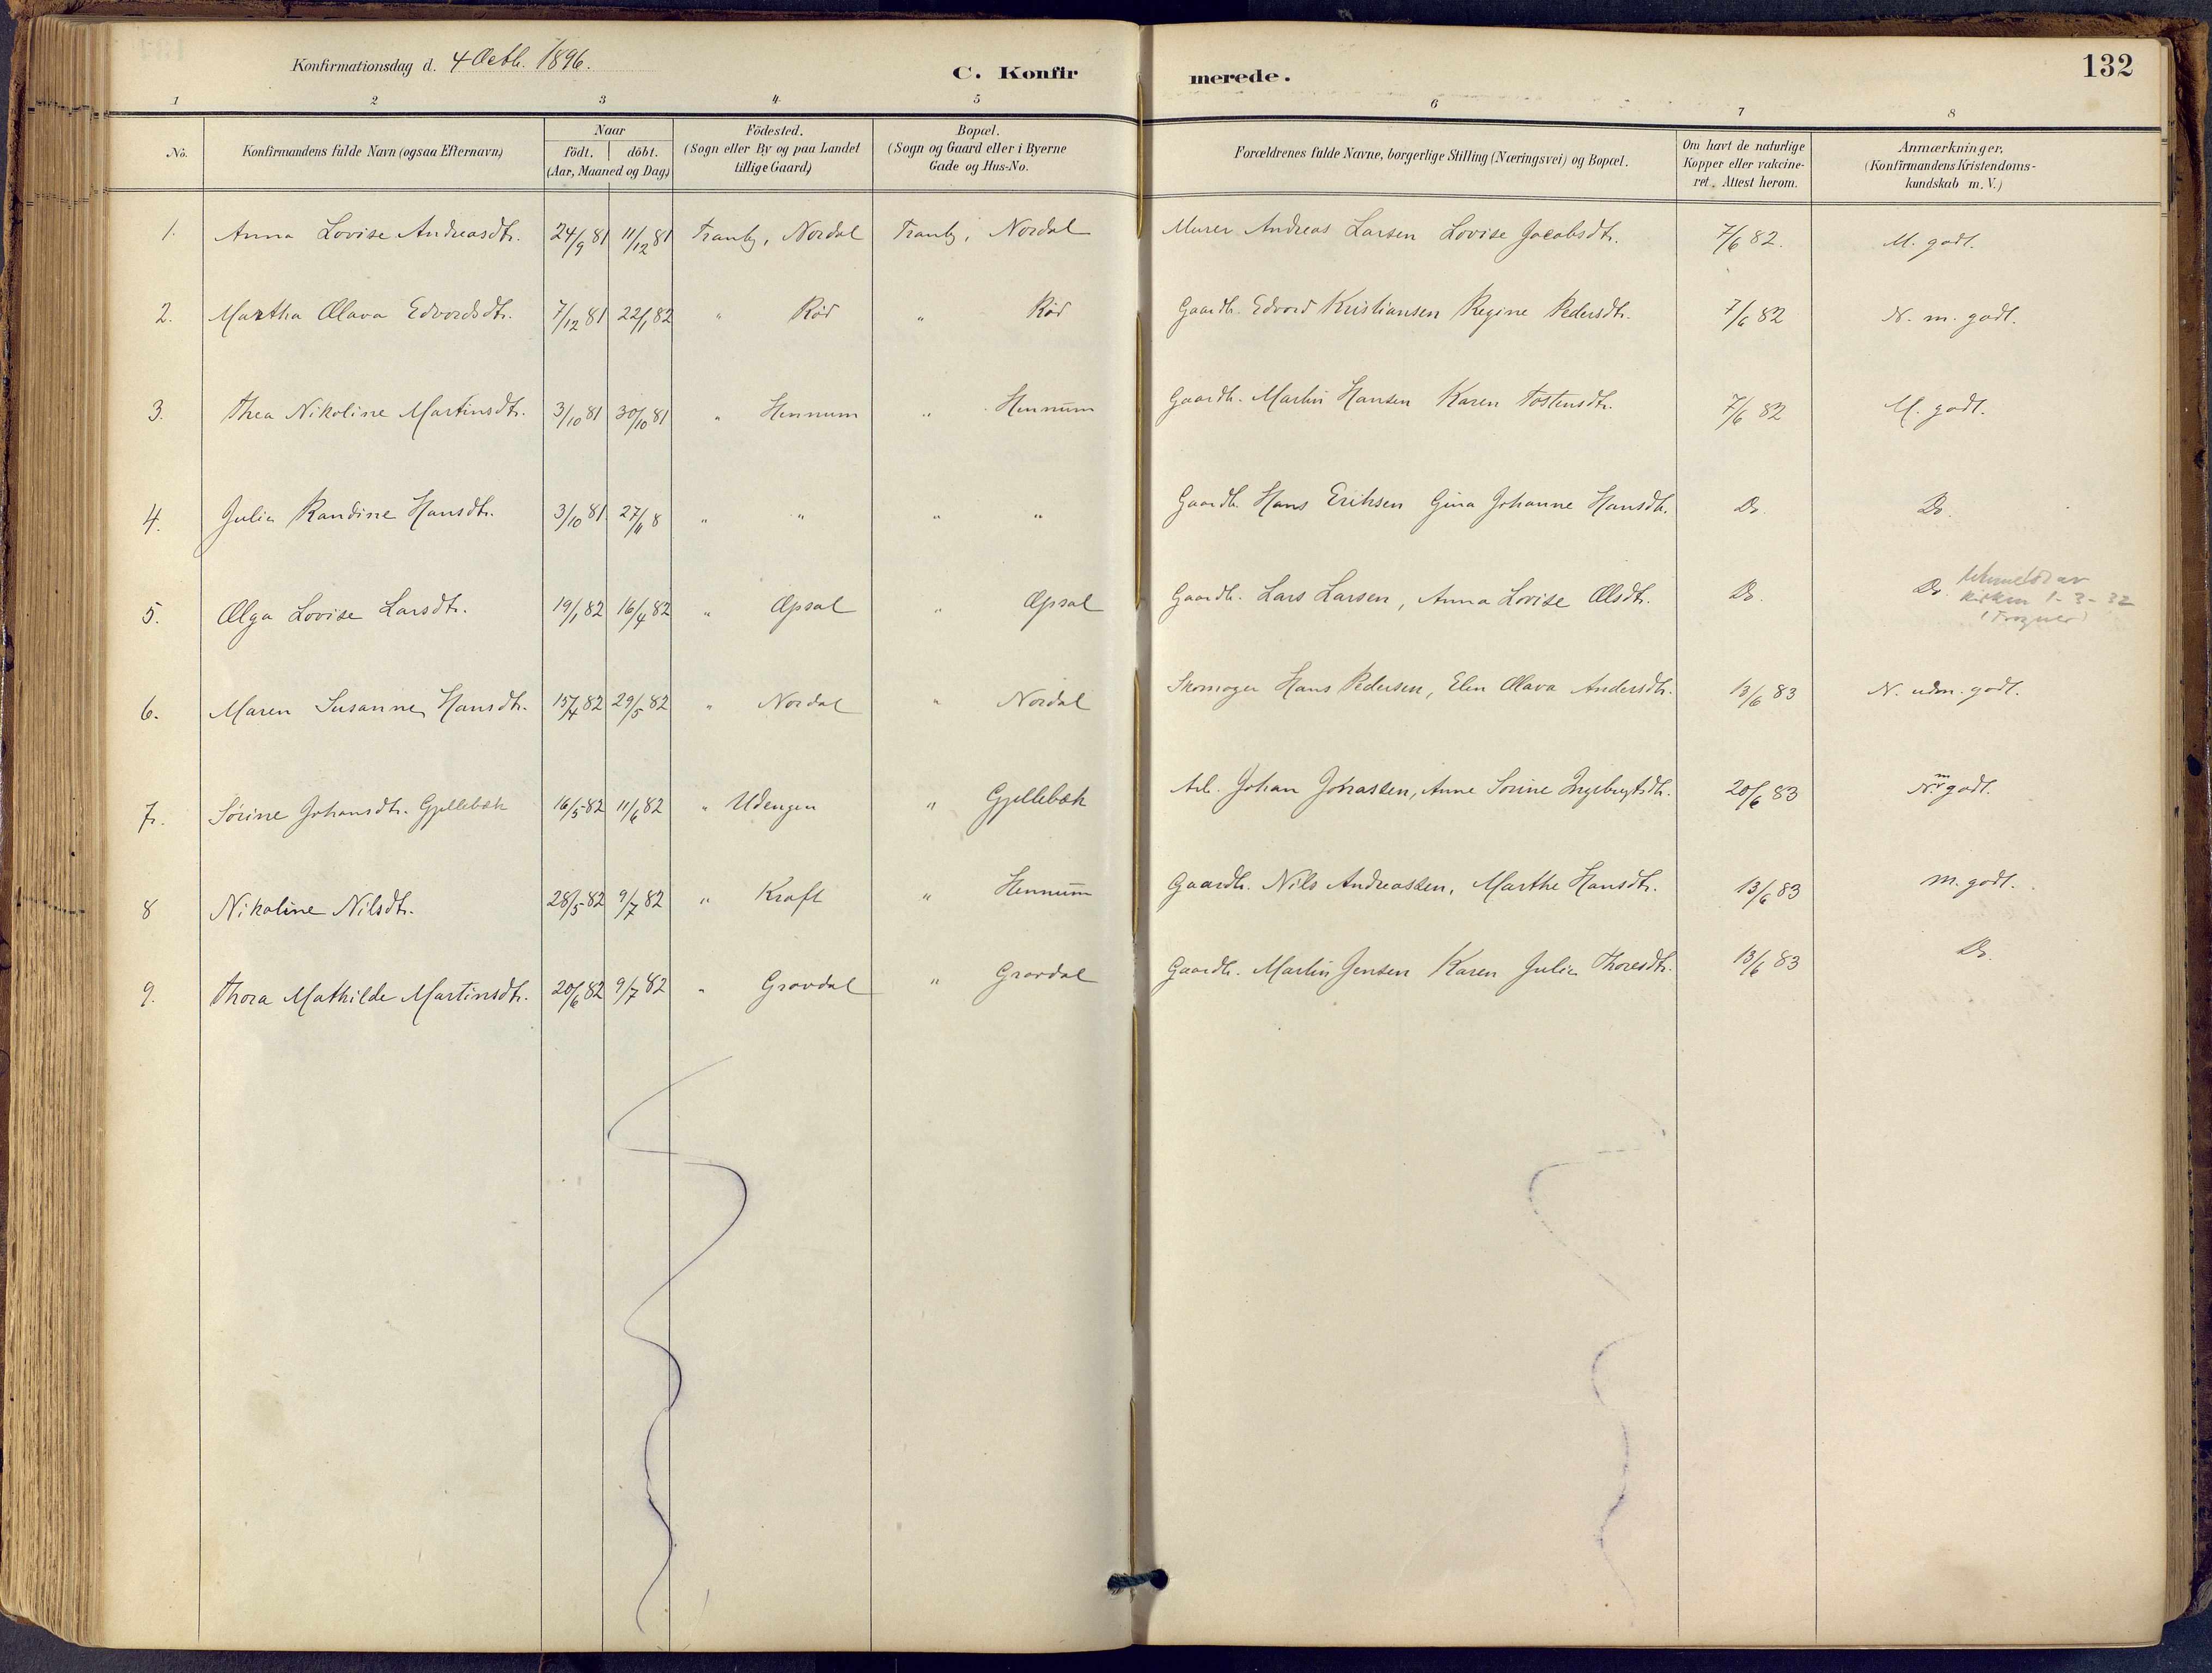 Konfirmationsdag d. 4 Octb. 1896.
C. Konfirmerede.
132
1 2 3 4 5 6 7 8
No. Konfirmandens fulde Navn (ogsaa Efternavn) Naar födt. döbt. (Aar, Maaned og Dag) Födested. (Sogn eller By og paa Landet tillige Gaard) Bopæl. (Sogn og Gaard eller i Byerne Gade og Hus-No. Forældrenes fulde Navne, borgerlige Stilling (Næringsvei) og Bopæl. Om havt de naturlige Kopper eller vakcineret. Attest herom. Anmærkninger. (Konfirmandens Kristendomskundskab m. V.)
1. Anna Lovise Andreasdtr. 24/9 81 11/12 81 Tranby, Nordal Tranby, Nordal Murer Andreas Larsen Lovise Jacobsdtr. 7/6 82. M. godt.
2. Martha Olava Edvardsdtr. 7/12 81 22/1 82 " Röd " Röd Gaardb. Edvard Kristiansen Regine Pedersdtr. 7/6 82 N. m. godt.
3. Thea Nikoline Martinsdtr. 3/10 81 30/10 81 " Hennum " Hennum Gaardb. Martin Hansen Karen Tostensdtr. 7/6 82 M. godt.
4. Julie Randine Hansdtr. 3/10 81 27/11 8 " " " " Gaardb. Hans Eriksen Gina Johanne Hansdtr. Do. Do.
5. Olga Lovise Larsdtr. 19/1 82 16/4 82 " Opsal " Opsal Gaardb. Lars Larsen, Anna Lovise Olsdtr. Do. Do. Utmeldt av kirken 1-3-32 (Frogner)
6. Maren Susanne Hansdtr. 15/4 82 29/5 82 " Nordal " Nordal Skomager Hans Pedersen, Elen Olava Andersdtr. 13/6 83 N. udm. godt.
7. Sörine Johansdtr. Gjellebæk 16/5 82 11/6 82 " Udengen " Gjellebæk Arb. Johan Jonassen, Anne Sorine Ingebrigtsdtr. 20/6 83 N. m godt.
8 Nikoline Nilsdtr. 28/5 82 9/7 82 " Kraft " Hennum Gaardb. Nils Andreassen, Marthe Hansdtr. 13/6 83 m. godt.
9. Thora Mathilde Martinsdtr. 20/6 82 9/7 82 " Gravdal " Gravdal Gaardb. Martin Jensen Karen Julie Thoresdtr. 13/6 83 Do.